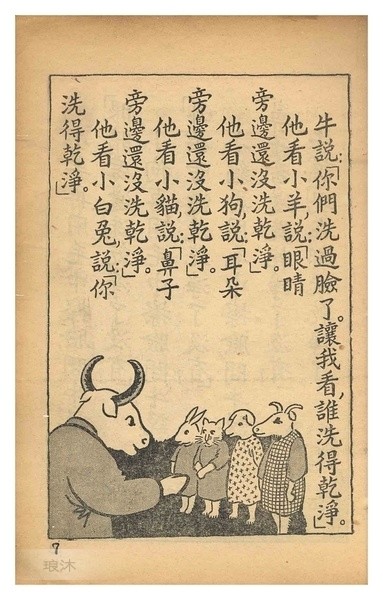 牛說：「你們洗過臉了。讓我看，誰洗得乾淨。」
他看小羊，說：「眼睛
旁邊還沒洗乾淨。」
他看小狗，說：「耳朵
旁邊還沒洗乾淨。」
他看小貓，說：「鼻子
旁邊還沒洗乾淨。」
他看小白兔，說：「你
洗得乾淨。」
7
琅沐